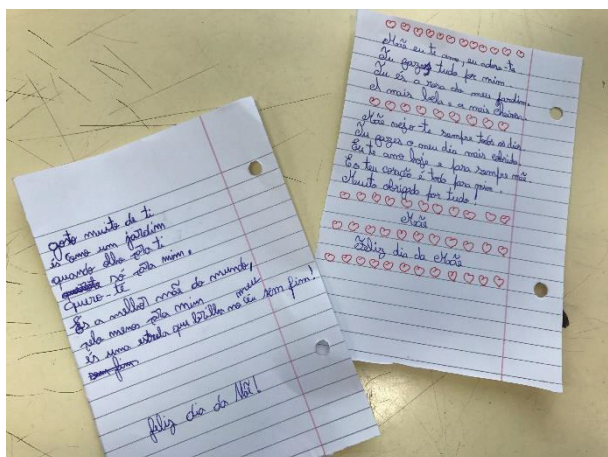 gosto muito de ti
és como um jardim
quando olho pra ti
quero-te só pra mim.
És a melhor mãe do mundo,
pelo menos pra mim
és uma estrela que brilha no meu céu sem fim!
feliz dia da Mãe!
Mãe eu te amo, eu adoro-te
Tu fazes tudo por mim
Tu és a rosa do meu jardim
A mais bela e a mais cheirosa
Mãe vejo-te sempre todos os dias
Tu fazes o meu dia mais colorido
Eu te amo hoje e para sempre mãe
Es teu coração é todo para mim
Muito obrigado por tudo!
Mãe
Feliz dia da Mãe